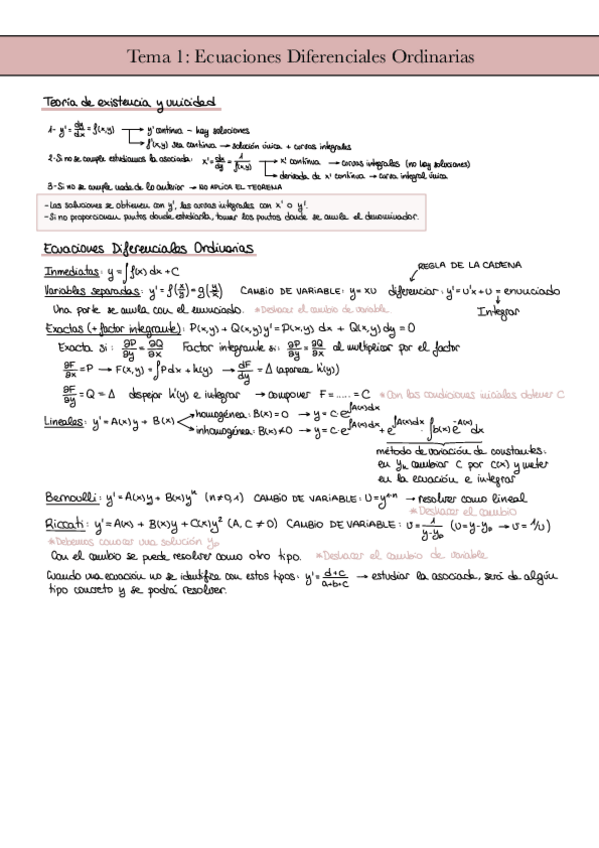 Tema 1: Ecuaciones Diferenciales Ordinarias
Teoría de existencia y unicidad
1- y' = dy/dx = f(x,y) → y' continua - hay soluciones
→ f'(x,y) sea continua → solución única + curvas integrales
2-Si no se cumple estudiamos la asociada: x' = dx/dy = 1/f(x,y) → x' continua → curvas integrales (no hay soluciones)
→ derivada de x' continua → curva integral única
3-Si no se cumple nada de lo anterior → NO APLICA EL TEOREMA
-Las soluciones se obtienen con y', las curvas integrales con x' o y'.
-Si no proporcionan puntos donde estudiarla, tomar los puntos donde se anula el denominador.
Ecuaciones Diferenciales Ordinarias
REGLA DE LA CADENA
Inmediatas: y = ∫f(x) dx + C
Variables separadas: y' = f(x/y) = g(y/x) CAMBIO DE VARIABLE: y = xu diferenciar: y' = u'x + u = enunciado
Una parte se anula con el enunciado. *Deshacer el cambio de variable. Integrar
Exactas (+ factor integrante): P(x,y) + Q(x,y) y' = P(x,y) dx + Q(x,y) dy = 0
Exacta si: ∂P/∂y = ∂Q/∂x Factor integrante si: ∂P/∂y = ∂Q/∂x al multiplicar por el factor
∂F/∂x = P → F(x,y) = ∫P dx + h(y) → dF/dy = Δ (aparece h'(y))
∂F/∂y = Q = Δ despejar h'(y) e integrar → componer F = ..... = C *Con las condiciones iniciales obtener C
Lineales: y' = A(x) y + B(x) → homogénea: B(x) = 0 → y = C·e^∫A(x)dx
→ inhomogénea: B(x) ≠ 0 → y = C·e^∫A(x)dx + e^∫A(x)dx · ∫b(x) e^-A(x) dx
método de variación de constantes:
en yh cambiar C por C(x) y meter
en la ecuación e integrar
Bernoulli: y' = A(x) y + B(x) y^n (n ≠ 0,1) CAMBIO DE VARIABLE: U = y^1-n → resolver como lineal
*Deshacer el cambio
Riccati: y' = A(x) + B(x) y + C(x) y² (A, C ≠ 0) CAMBIO DE VARIABLE: u = 1/(y-yp) (v = y-yp → v = 1/u)
*Debemos conocer una solución yp
Con el cambio se puede resolver como otro tipo. *Deshacer el cambio de variable
Cuando una ecuación no se identifica con estos tipos: y' = (d+C)/(a+b+c) → estudiar la asociada, será de algún
tipo concreto y se podrá resolver.